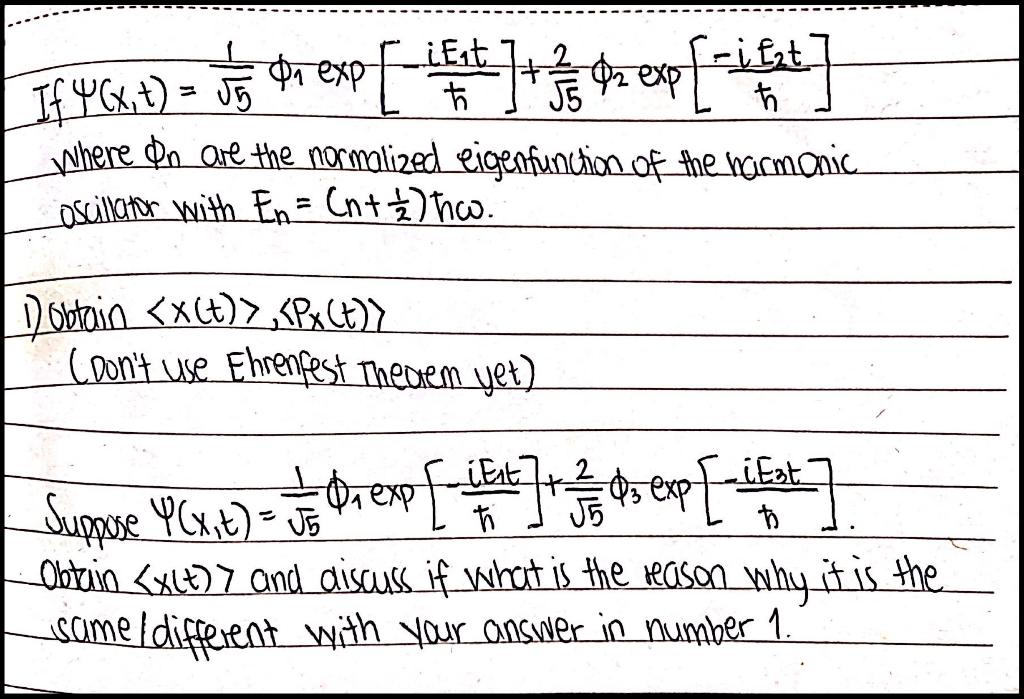 If Ψ(x,t) = 1/√5 ϕ₁ exp [ -iE₁t/ħ ] + 2/√5 ϕ₂ exp [ -iE₂t/ħ ]
where ϕn are the normalized eigenfunction of the harmonic
oscillator with En = (n+½)ħω.
1) Obtain <x(t)>, <Px(t)>
(Don't use Ehrenfest Theorem yet)
Suppose Ψ(x,t) = 1/√5 ϕ₁ exp [ -iE₁t/ħ ] + 2/√5 ϕ₃ exp [ -iE₃t/ħ ].
Obtain <x(t)> and discuss if what is the reason why it is the
same/different with your answer in number 1.